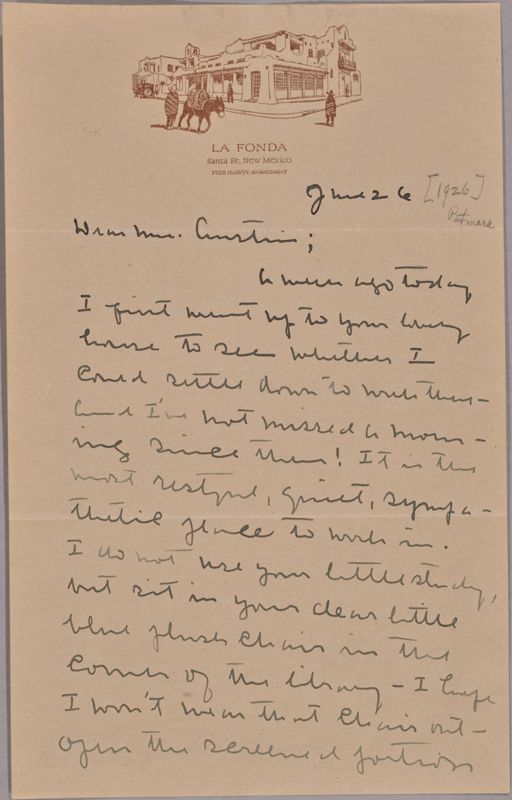 LA FONDA
Santa Fe, New Mexico
FRED HARVEY, MANAGEMENT
June 26 [1926]
Postmark
Dear Mrs. Austin;
A week ago today
I first went up to your lovely
house to see whether I
could settle down to work there –
and I've not missed a morn –
ing since then! It is the
most restful, quiet, sympa –
thetic place to work in.
I do not use your little study,
but sit in your dear little
blue plush chair in the
corner of the library – I hope
I won't wear that chair out –
open the screened